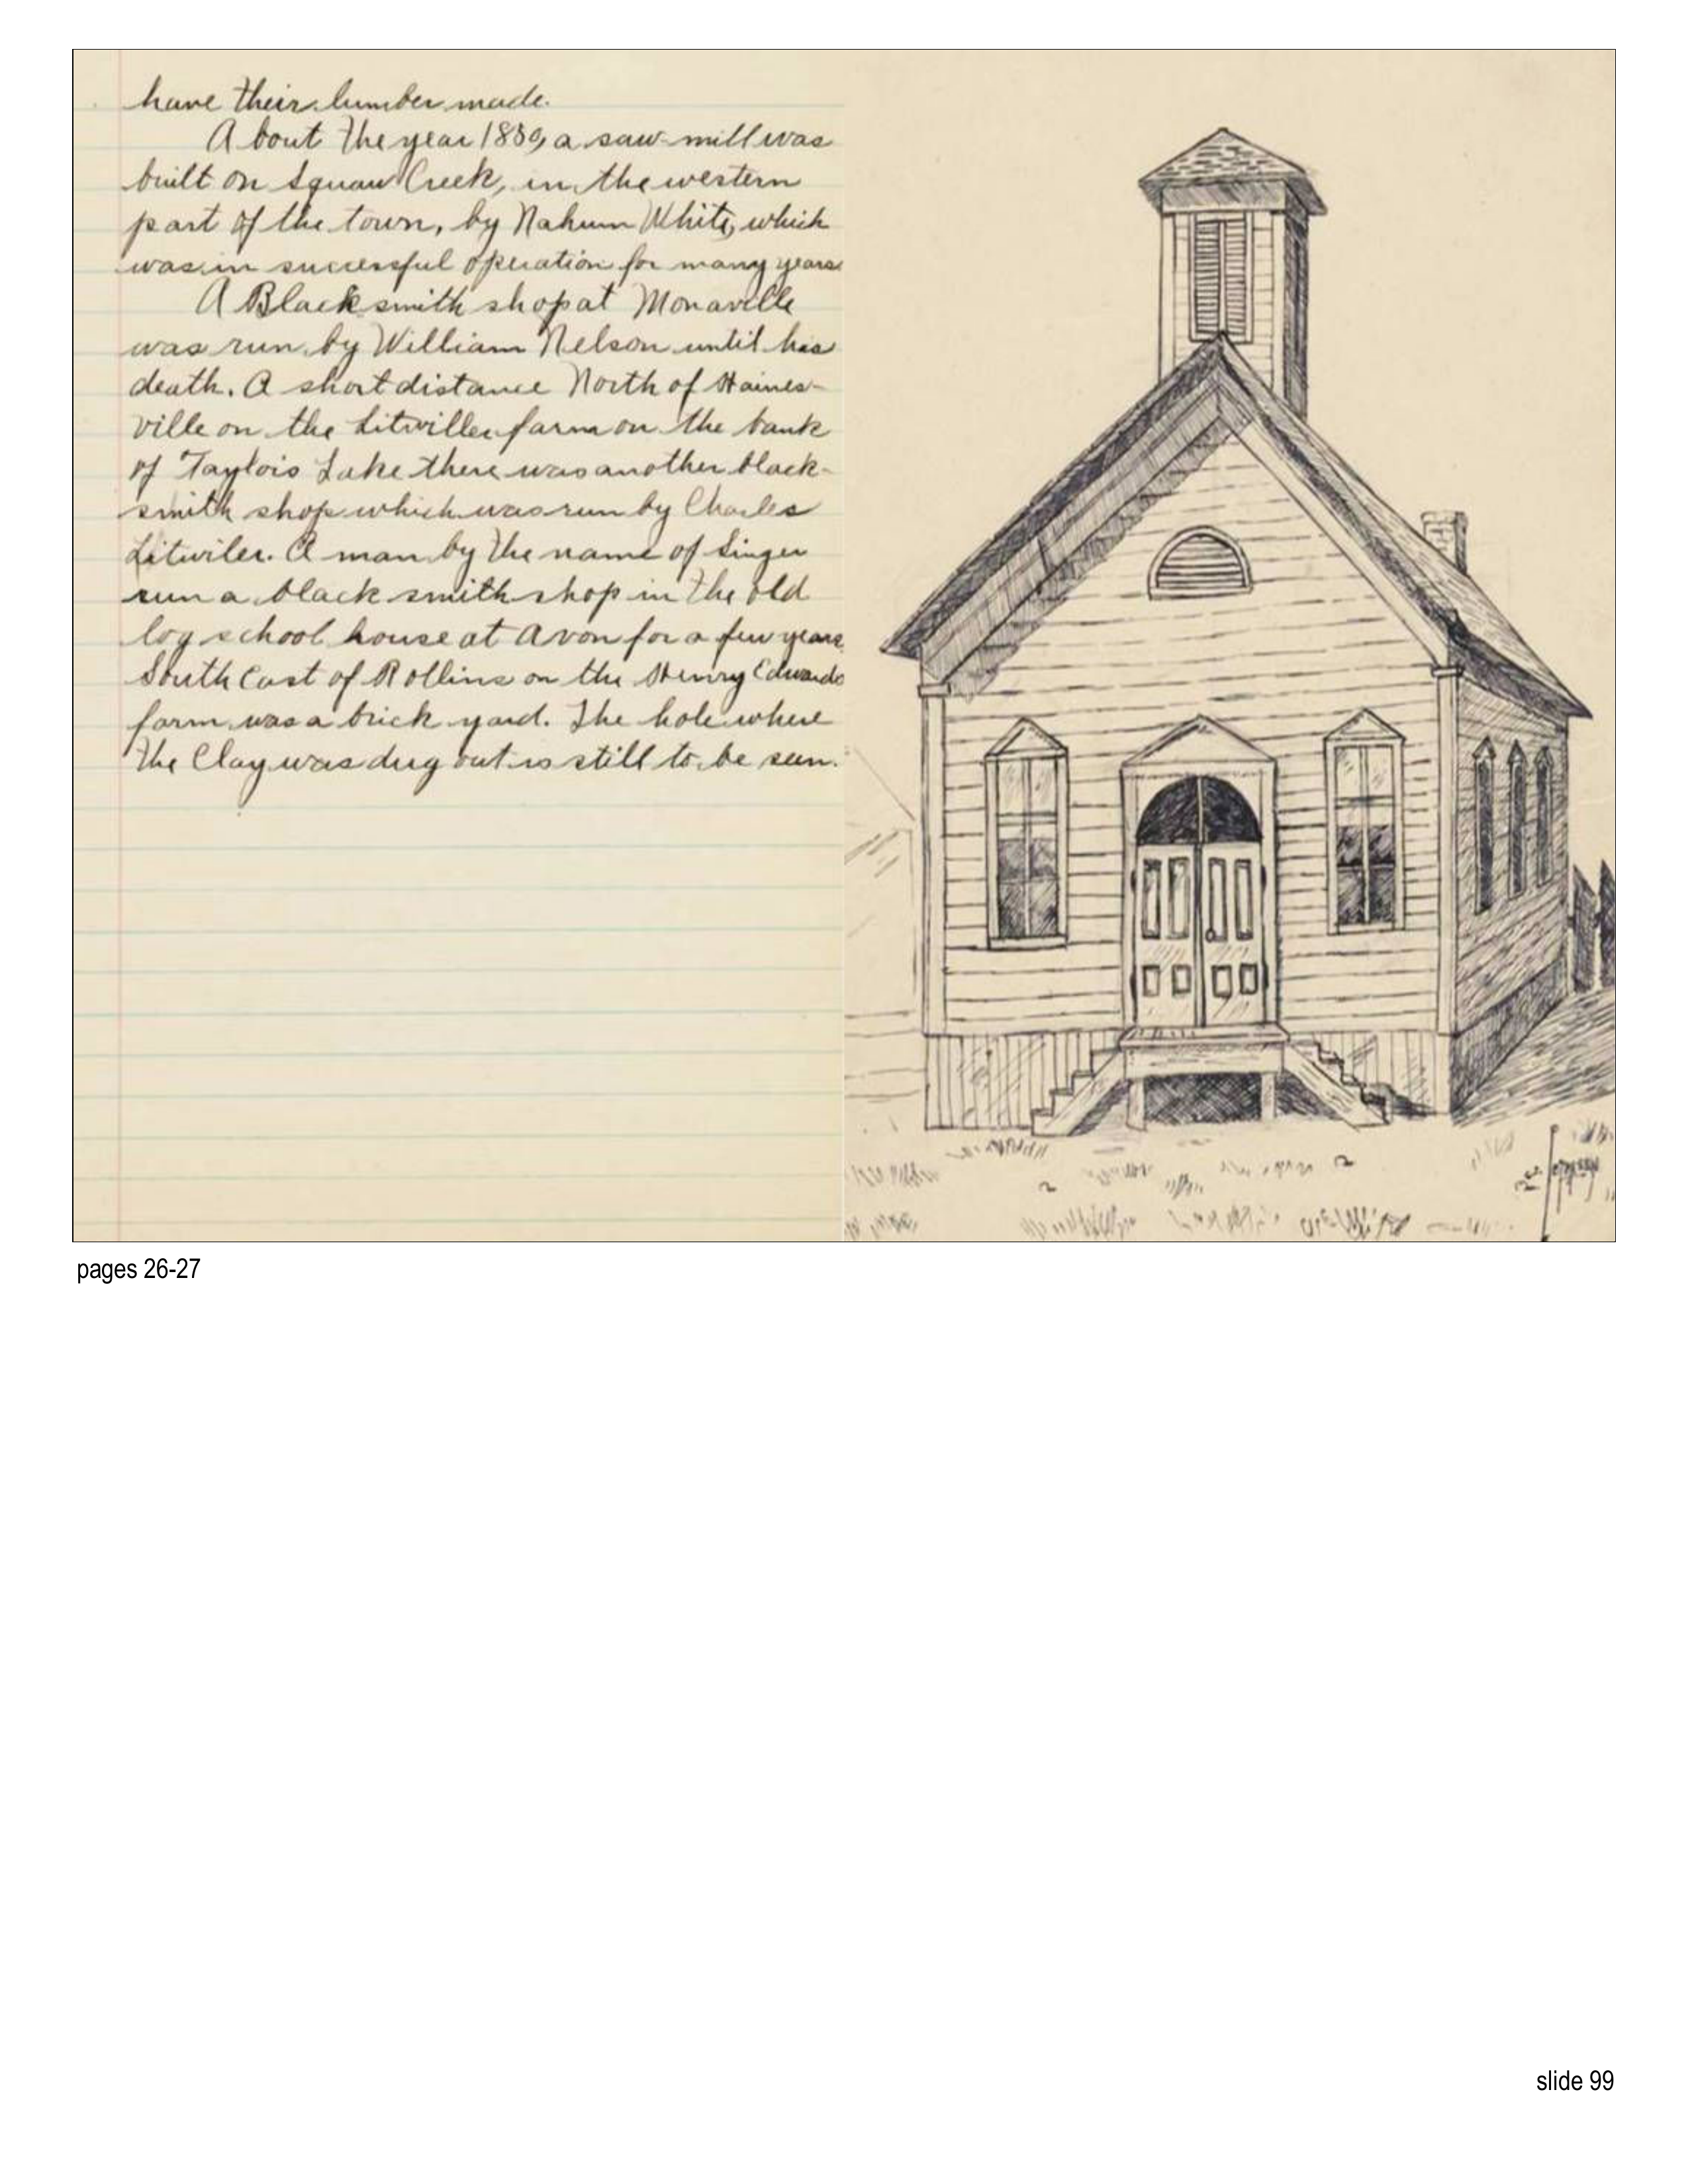 have their lumber made.
About the year 1850, a saw-mill was
built on Squaw Creek, in the western
part of the town, by Nahum White, which
was in successful operation for many years
A Blacksmith shop at Monaville
was run by William Nelson until his
death. A short distance North of Haines-
ville on the Litwiller farm on the bank
of Taylors Lake there was another black-
smith shop which was run by Charles
Litwiler. A man by the name of Singer
run a black smith shop in the old
log school house at Avon for a few years.
South East of Rollins on the Henry Edwards
farm was a brick yard. The hole where
the Clay was dug out is still to be seen.
pages 26-27
slide 99